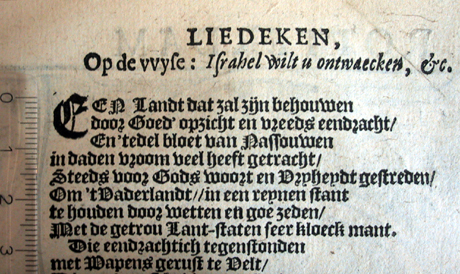 LIEDEKEN,
Op de vvyse: Israhel wilt u ontwaecken, &c.
EEN Landt dat zal zijn behouwen
door Goed' opzicht en vreeds eendracht/
En 't edel bloet van Nassouwen
in daden vroom veel heeft getracht/
Steeds voor Gods woort en Vryheydt gestreden/
Om 't Vaderlandt//in een reynen stant
te houden door wetten en goe zeden/
Met de getrou Lant-staten seer kloeck mant.
Die eendrachtich tegenstonden
met Wapens gerust te Velt/
0
1
2
3